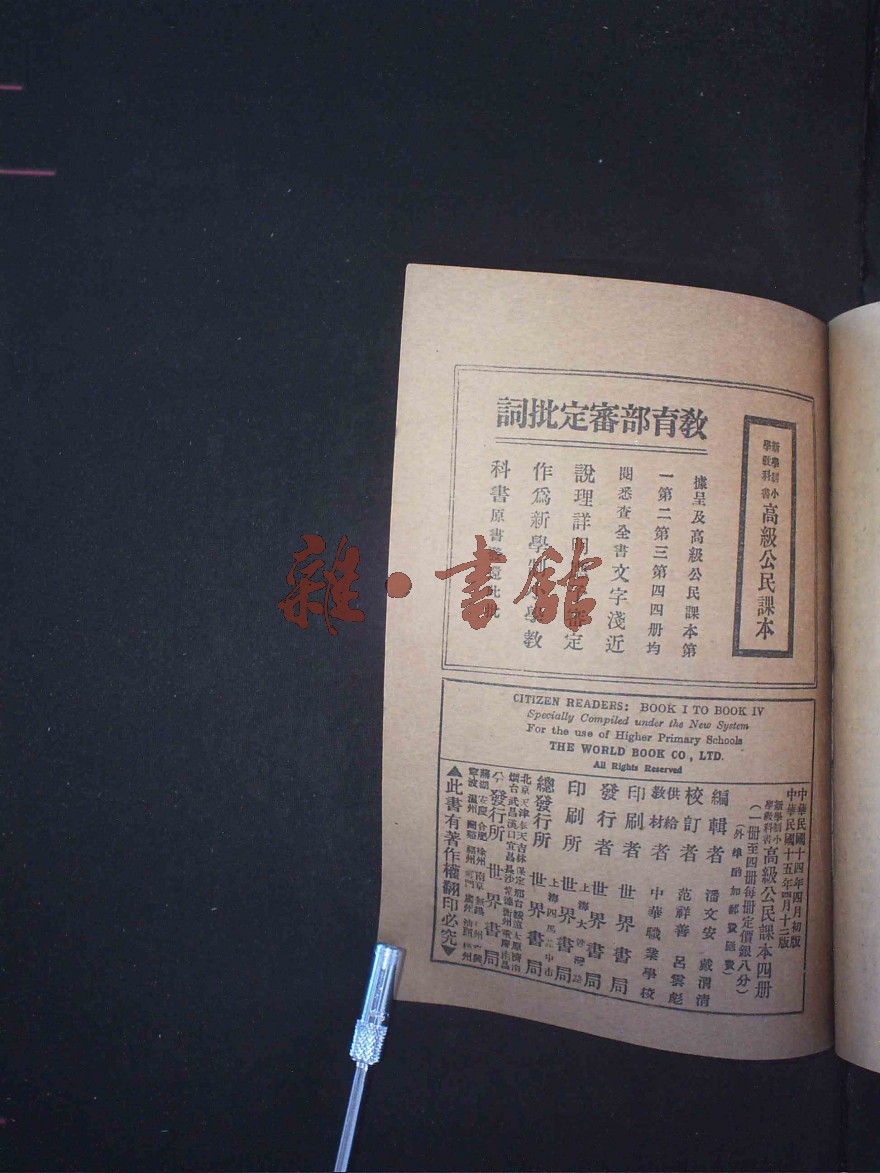 新學制小學教科書 高級公民課本
教育部審定批詞
據呈及高級公民課本第
一第二第三第四四册均
閱悉查全書文字淺近
說理詳
定
作爲新學制小學教
科書原書
CITIZEN READERS: BOOK I TO BOOK IV
Specially Compiled under the New System
For the use of Higher Primary Schools
THE WORLD BOOK CO., LTD.
All Rights Reserved
中華民國十四年四月初版
中華民國十五年四月十三版
新學制小學教科書 高級公民課本四册
(一册至四册每册定價銀八分)
(外埠酌加郵費匯費)
編輯者 潘文安 戴渭清
校訂者 范祥善 呂雲彪
供給教材者 中華職業學校
印刷者 世界書局
發行者 世界書局
印刷所 上海大 世界書局
總發行所 上海四馬路中市 世界書局
分發行所 世界書局
北京 天津 奉天 吉林 保定 邢台 綏遠 太原 濟南
烟台 武昌 漢口 宜昌 長沙 常德 衡州 重慶 南昌
蕪湖 安慶 合肥 徐州 南京 無錫
寧波 溫州 蘭谿 福州 廈門 廣州 汕頭 梧州
▲此書有著作權翻印必究▼
雜·書館